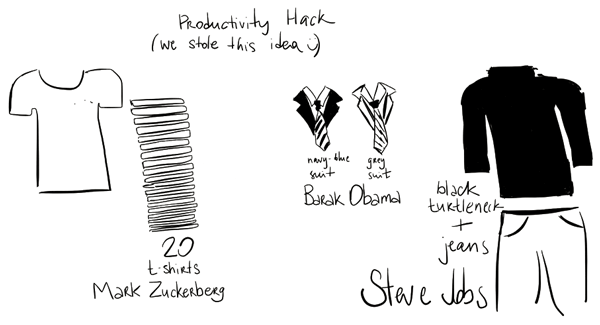 Productivity Hack
(we stole this idea :))
20
t-shirts
Mark Zuckerberg
navy-blue
suit
grey
suit
Barak Obama
black
turtleneck
+
jeans
Steve Jobs